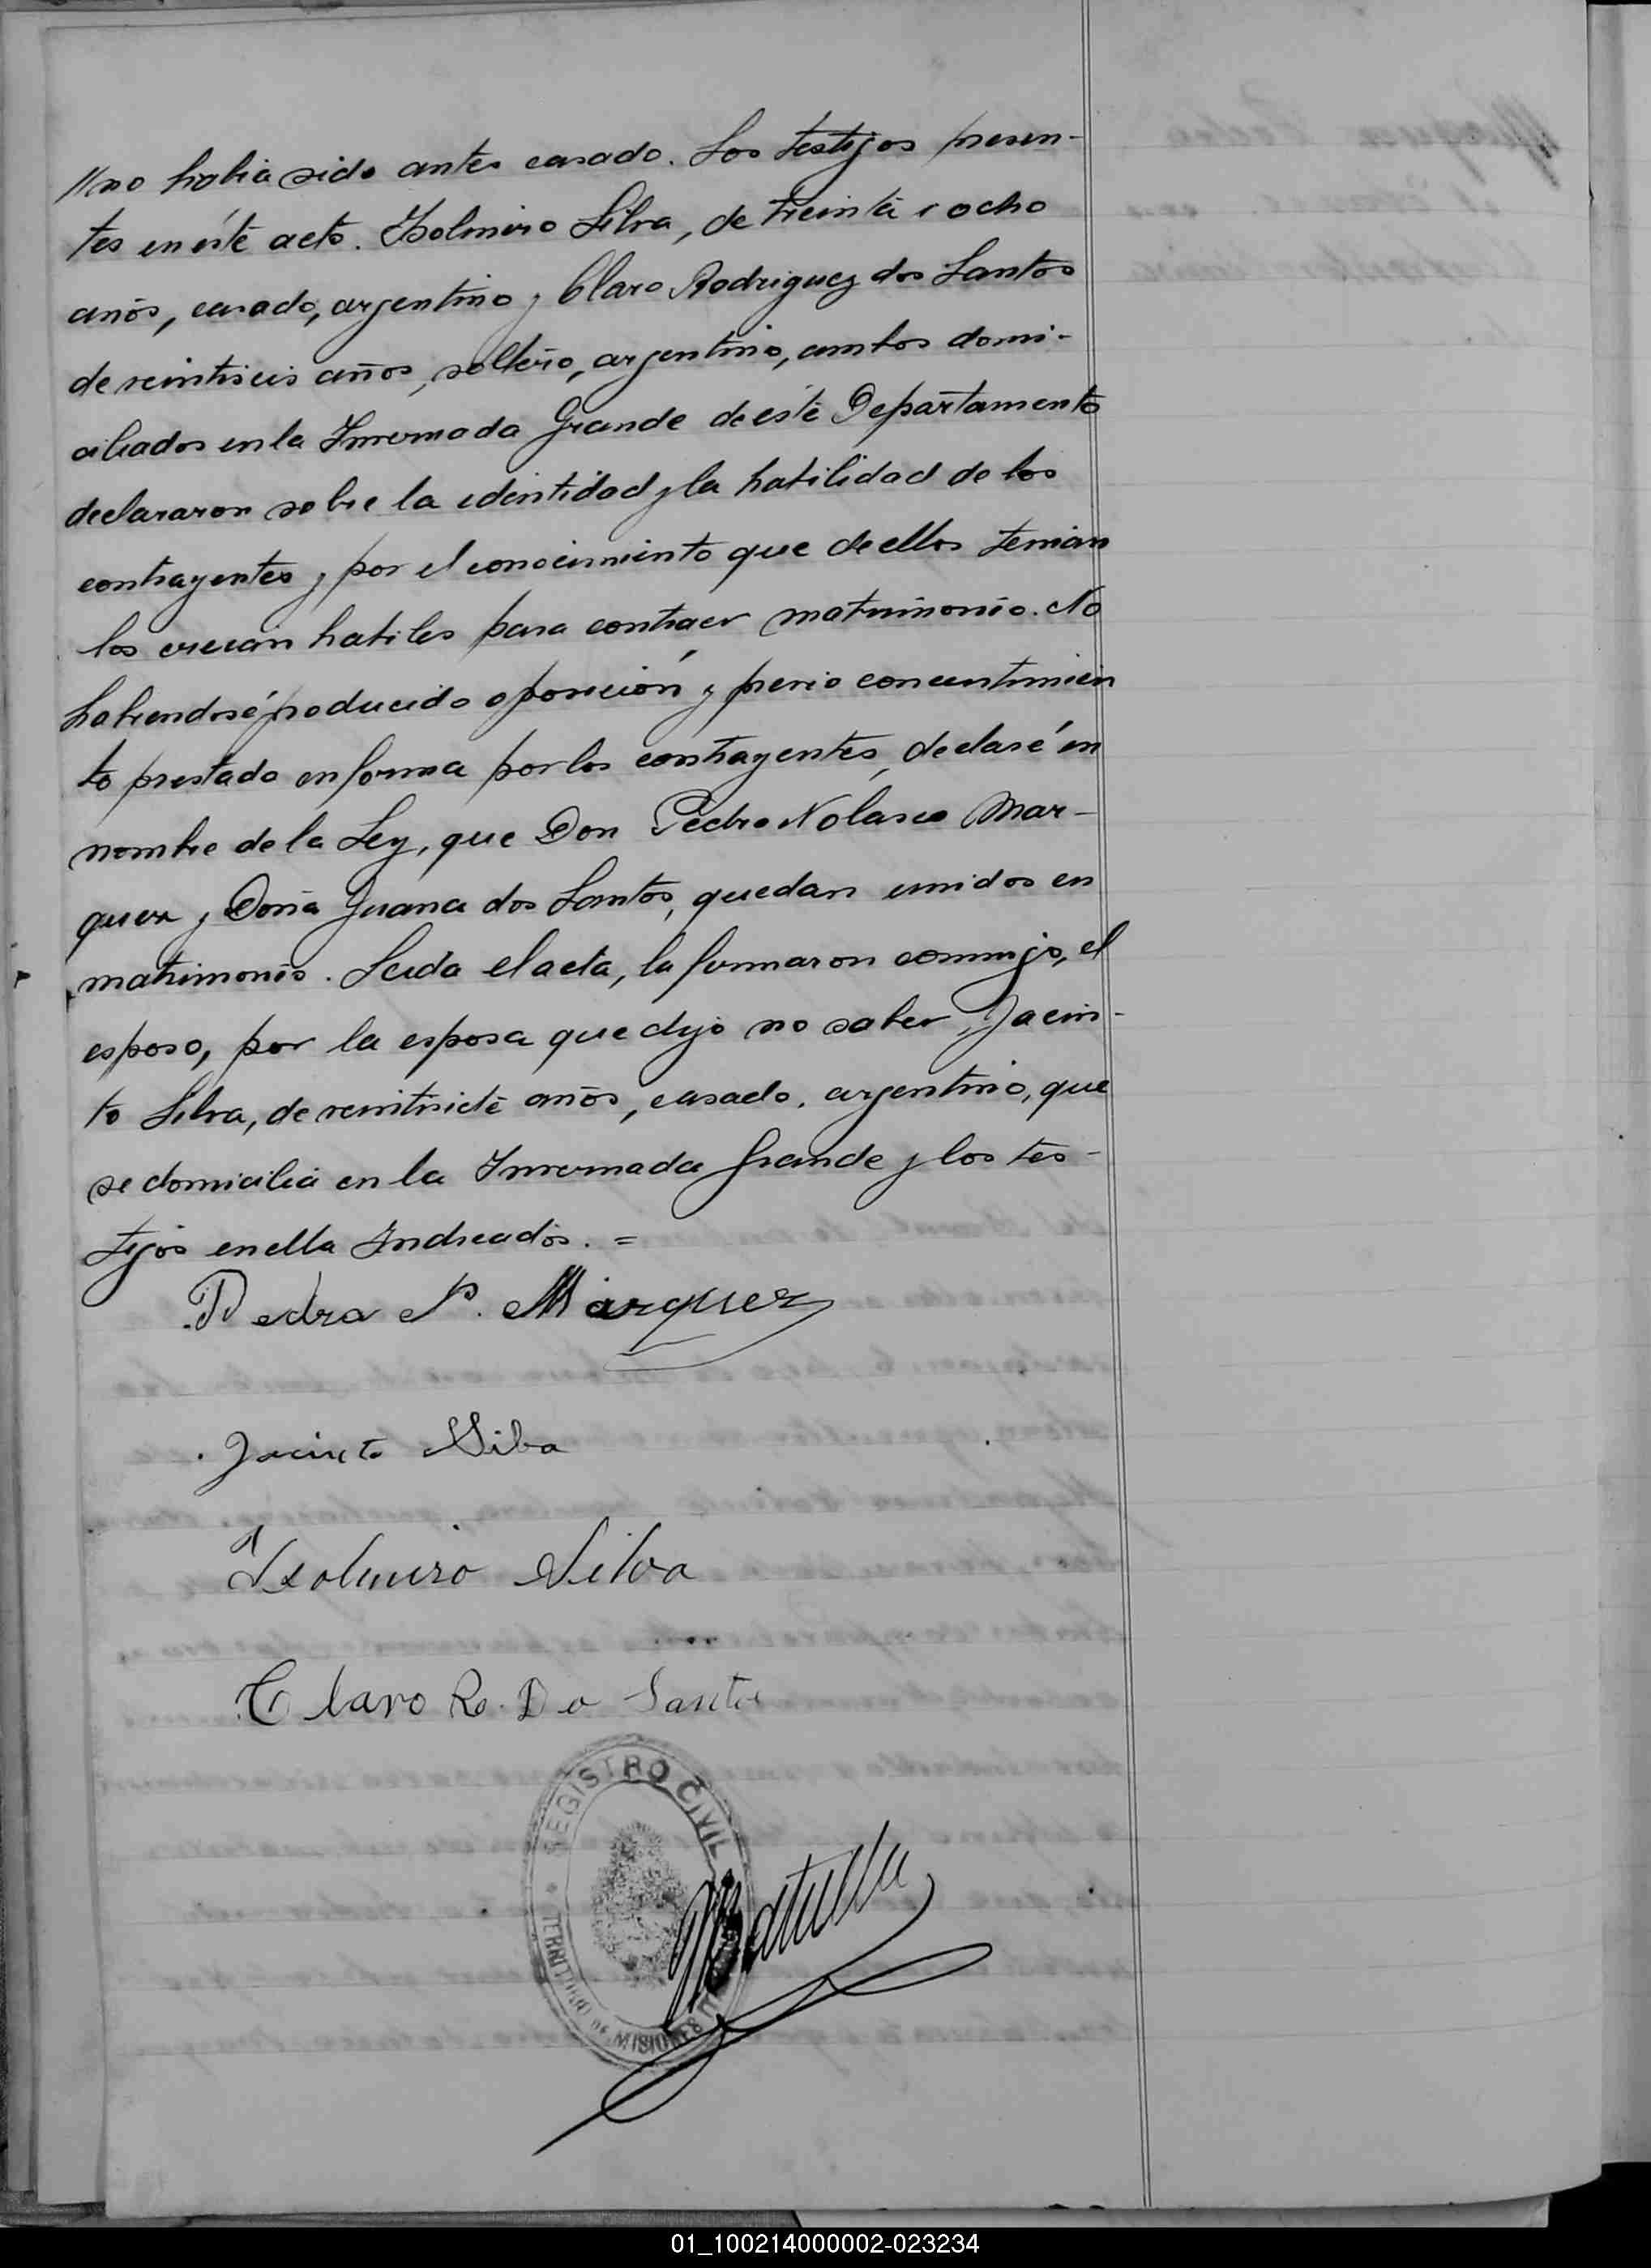 //no habia sido antes casado. Los testigos presen-
tes en éste acto. Isolmiro Silva, de treinta i ocho
años, casado, argentino y Claro Rodriguez dos Santos
de veintiseis años, soltero, argentino, ambos domi-
ciliados en la Invernada Grande de éste Departamento
declararon sobre la identidad y la habilidad de los
contrayentes y por el conocimiento que de ellos tenian
los creian habiles para contraer matrimonio. No
habiendosé producido oposición y previo concentimien
to prestado en forma por los contrayentes, declaré en
nombre de la Ley, que Don Pedro Nolasco Mar-
quez y Doña Juana dos Santos, quedan unidos en
matrimonio. Leida el acta, la firmaron conmigo, el
esposo, por la esposa que dijo no saber, Jacin-
to Silva, de veintisiete años, casado, argentino, que
se domicilia en la Invernada Grande y los tes-
tigos en ella Indicados. =
Pedro N. Marquez
Jacinto Silva
Isolmiro Silva
Claro Ro. Do Santos
REGISTRO CIVIL
TERRITORIO DE MISIONES